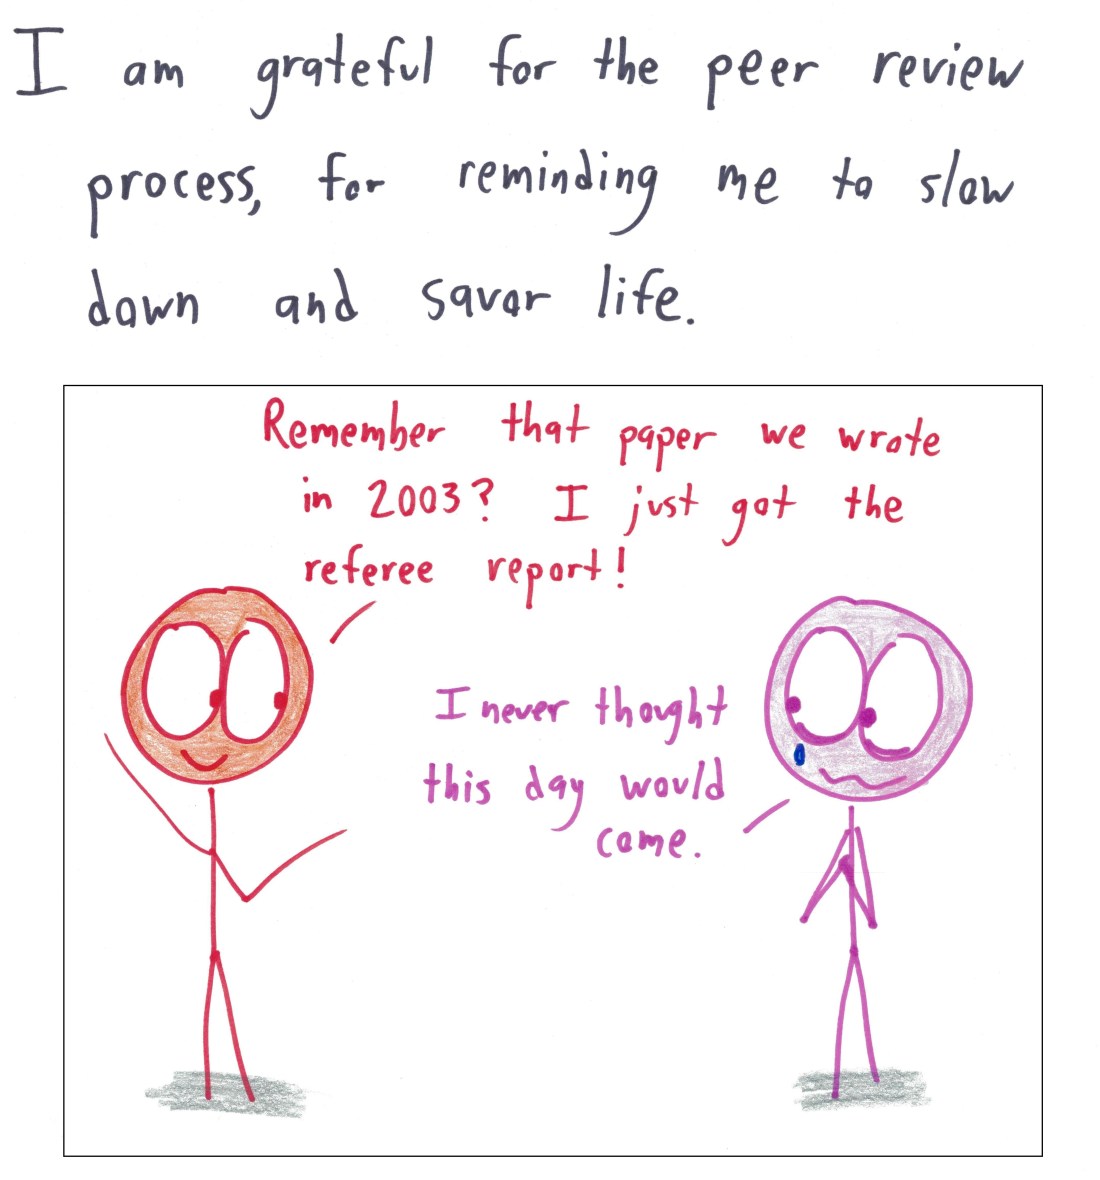 I am grateful for the peer review
process, for reminding me to slow
down and savor life.
Remember that paper we wrote
in 2003? I just got the
referee report!
I never thought
this day would
come.